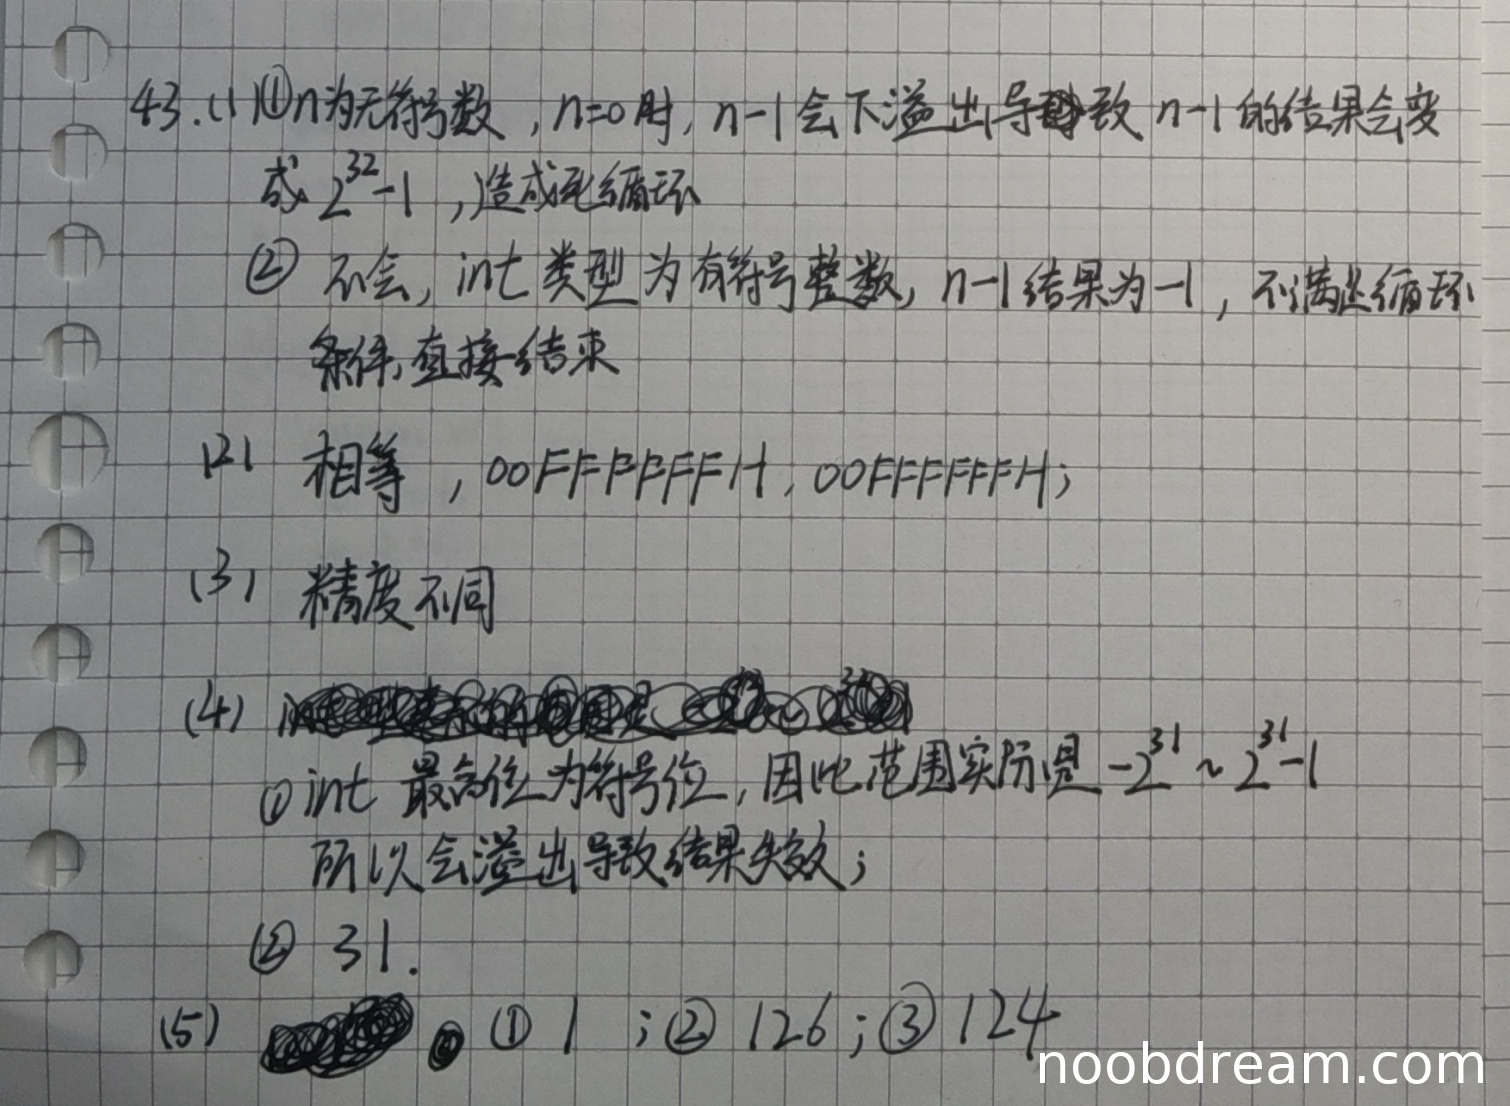 43.(1)①n为无符号数，n=0时，n-1会下溢出导致 n-1的结果会变
成 2^32-1，造成死循环
② 不会，int 类型为有符号整数，n-1结果为-1，不满足循环
条件，直接结束
(2) 相等，00FFFFFFH，00FFFFFFH；
(3) 精度不同
(4)
①int 最高位为符号位，因此范围实际是 -2^31 ~ 2^31-1
所以会溢出导致结果失效；
② 31.
(5) ① 1 ；② 126；③ 124
noobdream.com